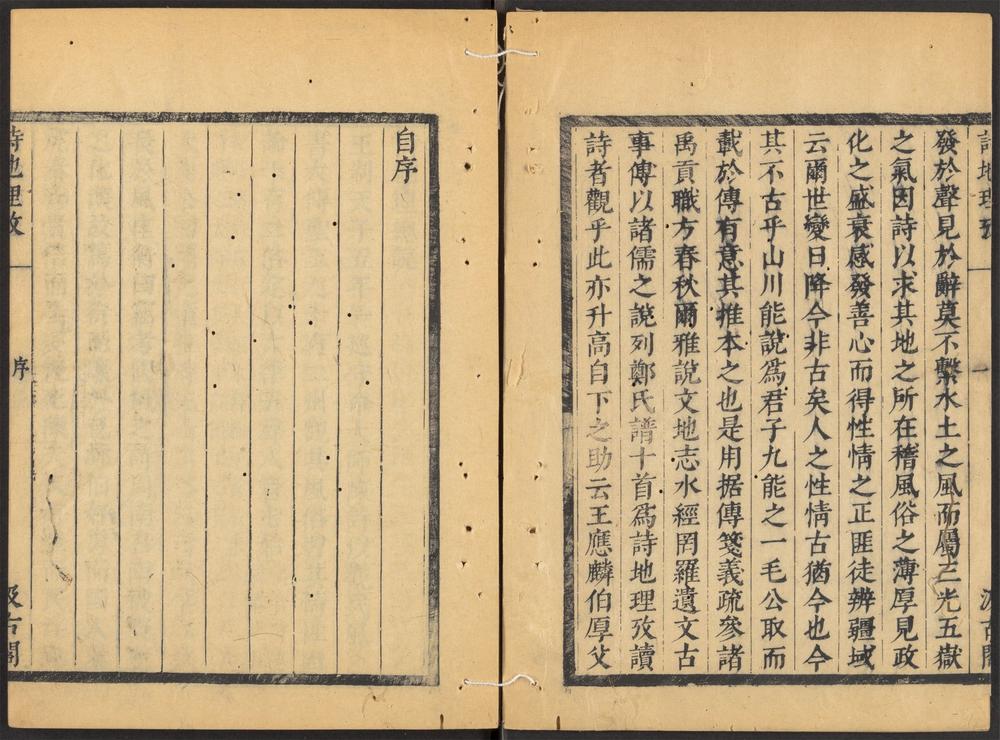 詩地理攷
汲古閣
發於聲見於辭莫不繫水土之風而屬三光五嶽
之氣因詩以求其地之所在稽風俗之薄厚見政
化之盛衰感發善心而得性情之正匪徒辨疆域
云爾世變日降今非古矣人之性情古猶今也今
其不古乎山川能說爲君子九能之一毛公取而
載於傳有意其推本之也是用据傳箋義疏參諸
禹貢職方春秋爾雅說文地志水經罔羅遺文古
事傳以諸儒之說列鄭氏譜十首爲詩地理攷讀
詩者觀乎此亦升高自下之助云王應麟伯厚父
自序
詩地理攷
序
汲古閣